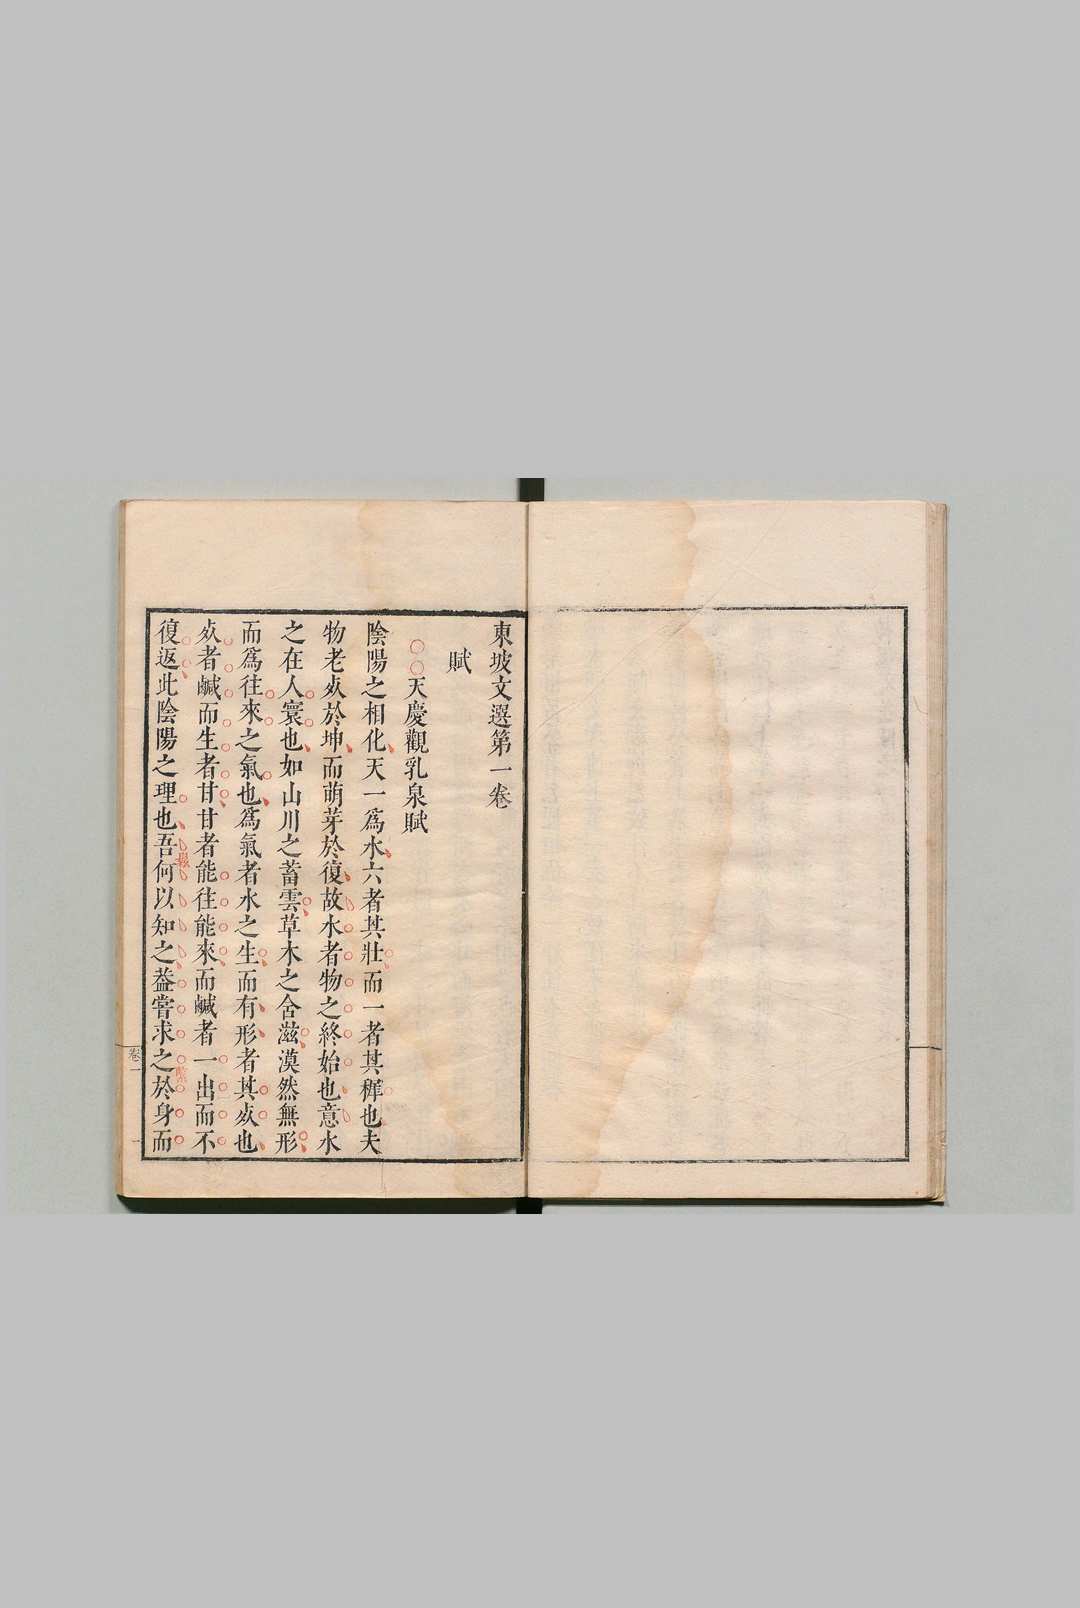 東坡文選第一卷
賦
○○天慶觀乳泉賦
陰陽之相化天一爲水六者其壯而一者其穉也夫
物老死於坤而萌芽於復故水者物之終始也意水
之在人寰也如山川之蓄雲草木之含滋漠然無形
而爲往來之氣也爲氣者水之生而有形者其死也
死者鹹而生者甘甘者能往能來而鹹者一出而不
復返此陰陽之理也吾何以知之葢嘗求之於身而
卷一
一